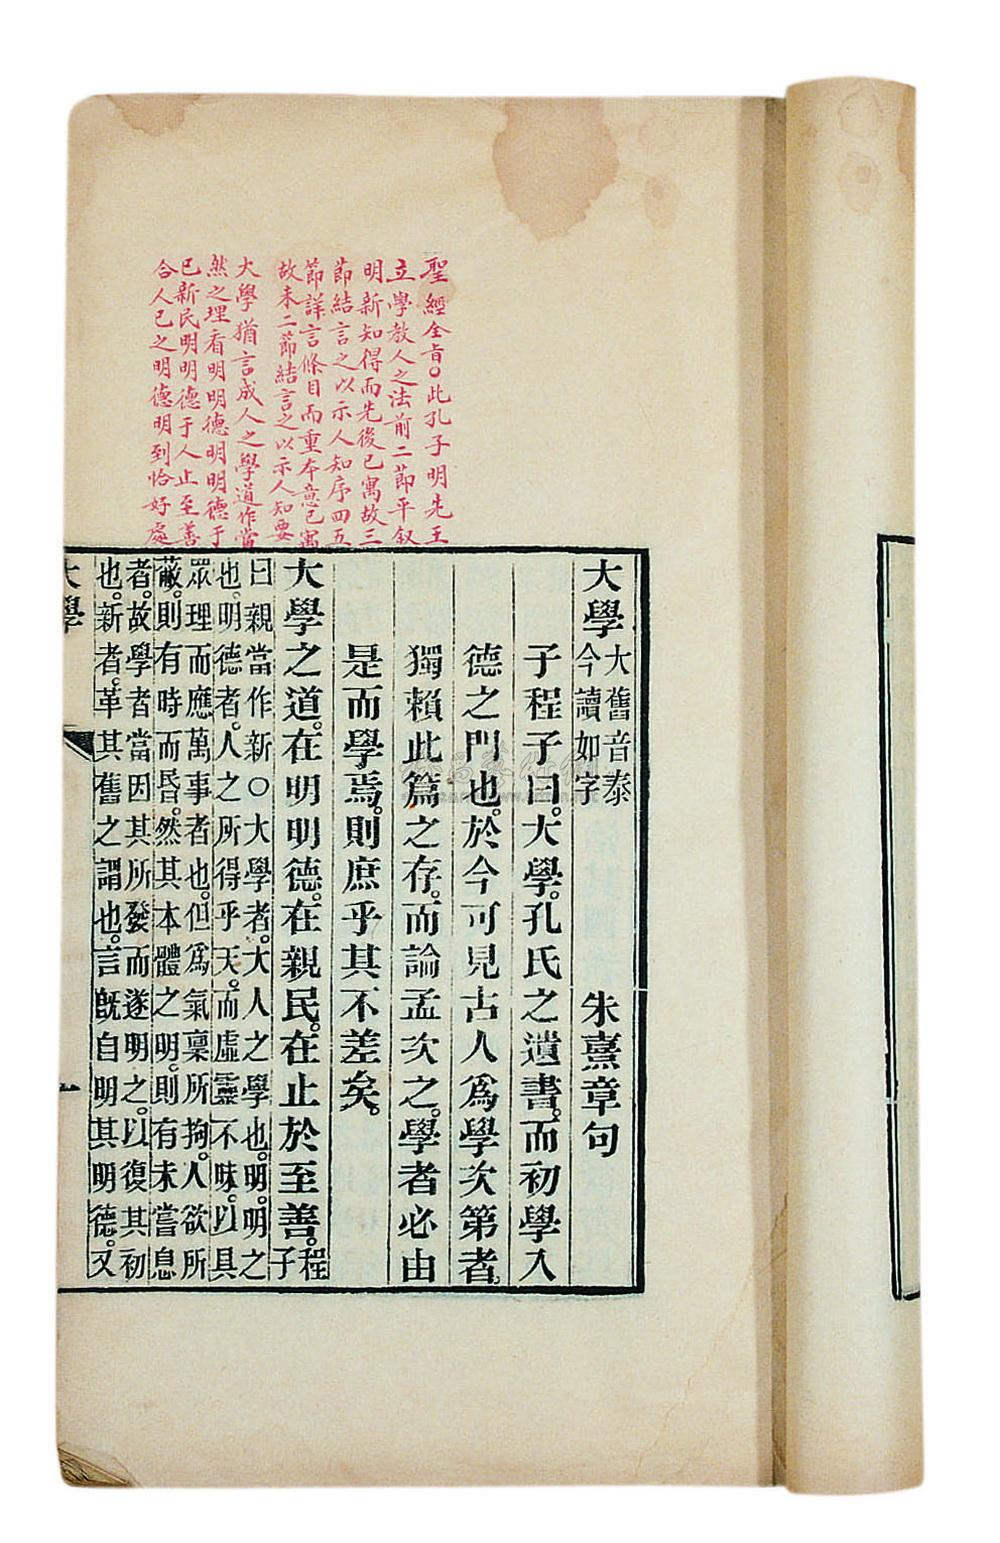 聖經全旨。此孔子明先王
立學教人之法前二節平叙
明新知得而先後已寓故三
節結言之以示人知序四五
節詳言條目而重本意已寓
故末二節結言之以示人知要
大學猶言成人之學道作當
然之理看明明德明明德于
己新民明明德于人止至善
合人己之明德明到恰好處
大學
大舊音泰
今讀如字
朱熹章句
子程子曰。大學。孔氏之遺書。而初學入
德之門也。於今可見古人爲學次第者。
獨賴此篇之存。而論孟次之。學者必由
是而學焉。則庶乎其不差矣。
大學之道。在明明德。在親民。在止於至善。
程
子
曰親當作新○大學者。大人之學也。明。明之
也。明德者。人之所得乎天。而虛靈不昧。以具
眾理而應萬事者也。但爲氣稟所拘。人欲所
蔽。則有時而昏。然其本體之明。則有未嘗息
者。故學者當因其所發而遂明之。以復其初
也。新者。革其舊之謂也。言旣自明其明德。又
大學
一